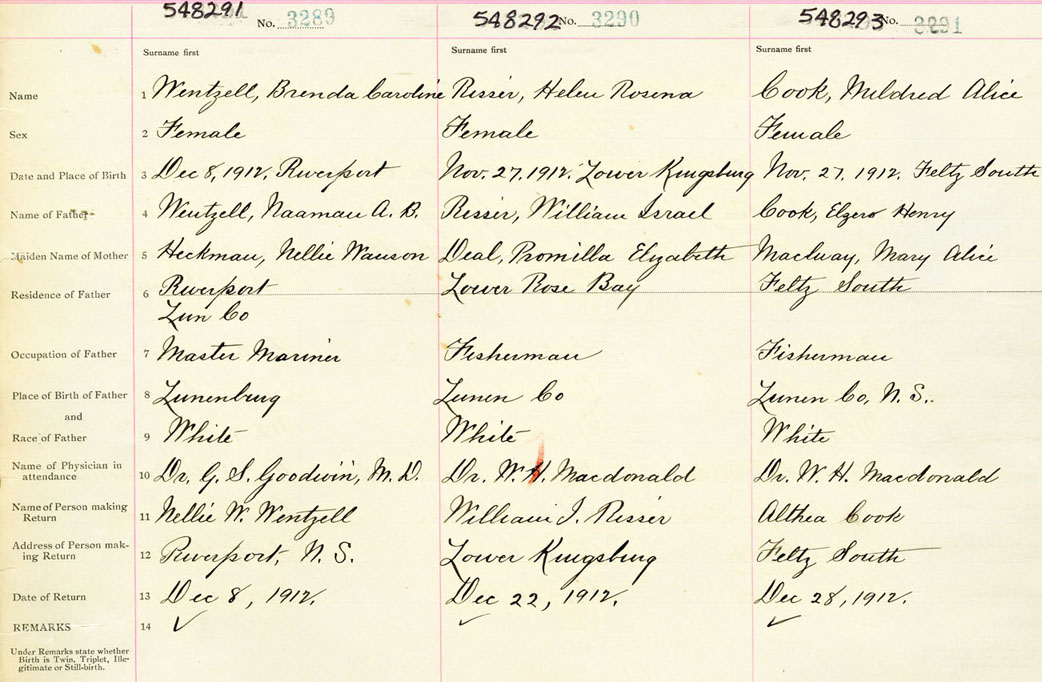 548291 No. 3289 548292 No. 3290 548293 No. 3291
Surname first Surname first Surname first
Name 1 Wentzell, Brenda Caroline Risser, Helen Rosena Cook, Mildred Alice
Sex 2 Female Female Female
Date and Place of Birth 3 Dec 8, 1912, Riverport Nov. 27. 1912. Lower Kingsburg Nov. 27. 1912. Feltz South
Name of Father 4 Wentzell, Naaman A. B. Risser, William Israel Cook, Henry
Maiden Name of Mother 5 Heckman, Nellie Deal, Promilla Elizabeth Mary Alice
Residence of Father 6 Riverport Lower Rose Bay Feltz South
Lun Co
Occupation of Father 7 Master Mariner Fisherman Fisherman
Place of Birth of Father 8 Lunenburg Lunen Co Lunen Co, N. S.
and
Race of Father 9 White White White
Name of Physician in
attendance 10 Dr. G. S. Goodwin, M. D. Dr. W. H. Macdonald Dr. W. H. Macdonald
Name of Person making
Return 11 Nellie W. Wentzell William I. Risser Althea Cook
Address of Person mak-
ing Return 12 Riverport, N. S. Lower Kingsburg Feltz South
Date of Return 13 Dec 8, 1912. Dec 22, 1912. Dec 28, 1912.
REMARKS 14 ✓ ✓ ✓
Under Remarks state whether
Birth is Twin, Triplet, Ille-
gitimate or Still-birth.